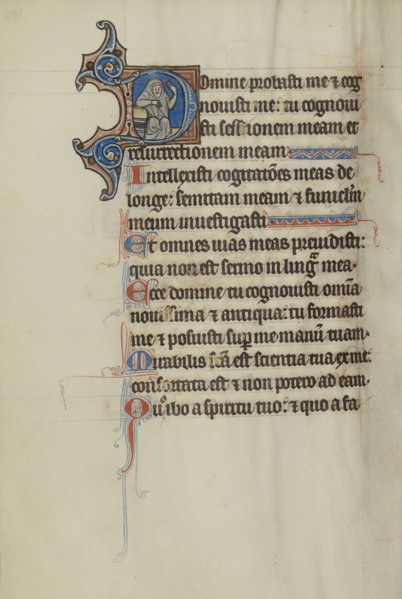 Domine probasti me ⁊ cog
nouisti me: tu cognoui
sti sessionem meam et
resurrectionem meam.
Intellexisti cogitatōes meas de
longe: semitam meam ⁊ funiclm̄
meum inuestigasti.
Et omnes uias meas preuidisti:
quia non est sermo in lingᷓ mea.
Ecce domine tu cognouisti om̄ia
nouissima ⁊ antiqua: tu formasti
me ⁊ posuisti suꝑ me manū tuam.
Mirabilis fc̄a est scientia tua ex me:
confortata est ⁊ non potero ad eam.
Quo ibo a spiritu tuo: ⁊ quo a fa